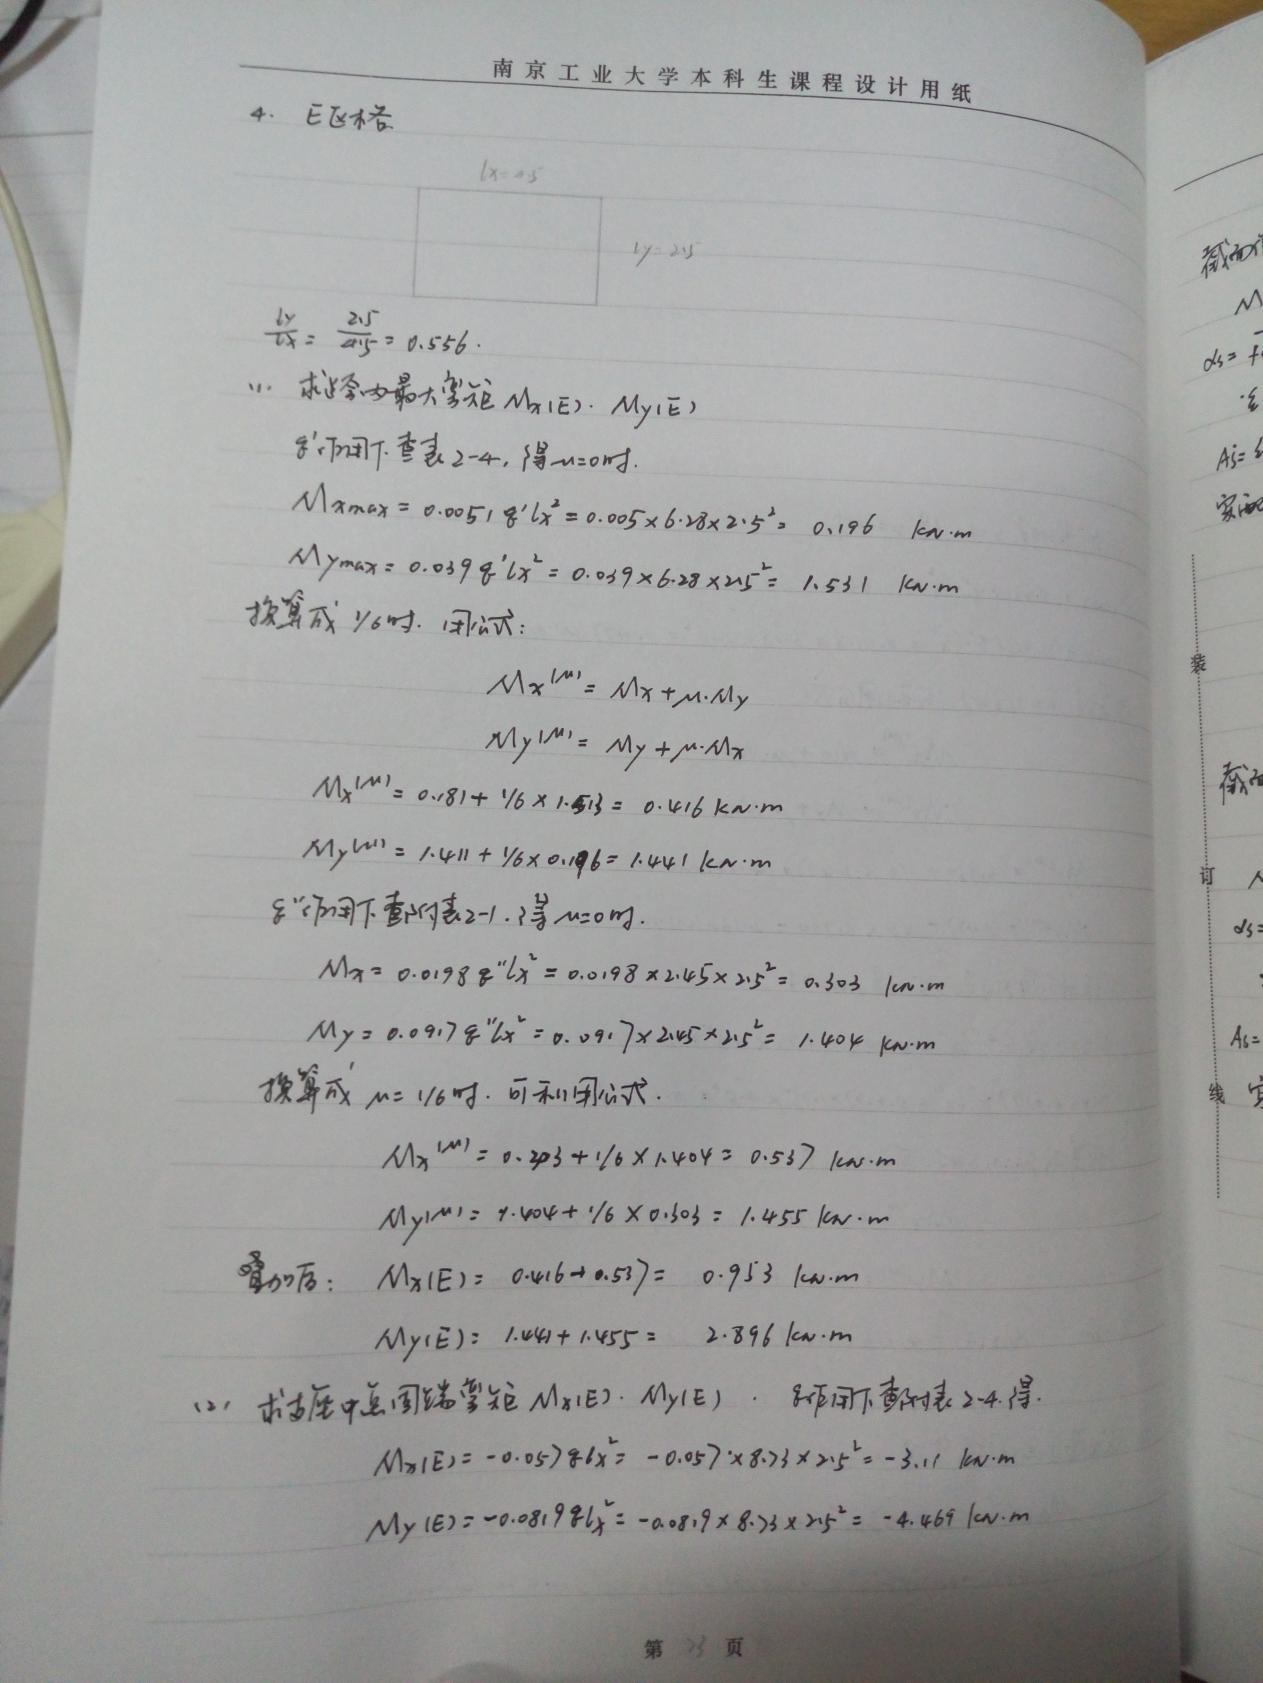 南京工业大学本科生课程设计用纸
4. E区格
lx=4.5
ly=2.5
ly/lx = 2.5/4.5 = 0.556.
(1) 求跨内最大弯矩 Mx(E). My(E)
q'作用下查表2-4, 得μ=0时.
Mxmax = 0.0051 q'lx² = 0.005×6.28×2.5² = 0.196 kN·m
Mymax = 0.039 q'lx² = 0.039×6.28×2.5² = 1.531 kN·m
换算成 1/6时. 用公式:
Mx(μ) = Mx+μ·My
My(μ) = My+μ·Mx
Mx(μ) = 0.181+1/6×1.513 = 0.416 kN·m
My(μ) = 1.411+1/6×0.196 = 1.441 kN·m
q''作用下查附表2-1. 得μ=0时.
Mx = 0.0198 q''lx² = 0.0198×2.45×2.5² = 0.303 kN·m
My = 0.0917 q''lx² = 0.0917×2.45×2.5² = 1.404 kN·m
换算成 μ=1/6时. 可利用公式.
Mx(μ) = 0.303+1/6×1.404 = 0.537 kN·m
My(μ) = 1.404+1/6×0.303 = 1.455 kN·m
叠加后: Mx(E) = 0.416+0.537 = 0.953 kN·m
My(E) = 1.441+1.455 = 2.896 kN·m
(2) 求支座中点固端弯矩 Mx(E). My(E). q作用下查附表2-4.得.
Mx(E) = -0.057qlx² = -0.057×8.73×2.5² = -3.11 kN·m
My(E) = -0.0819qlx² = -0.0819×8.73×2.5² = -4.469 kN·m
第 23 页
装
订
线
M
αs=
As=
αs=
As=